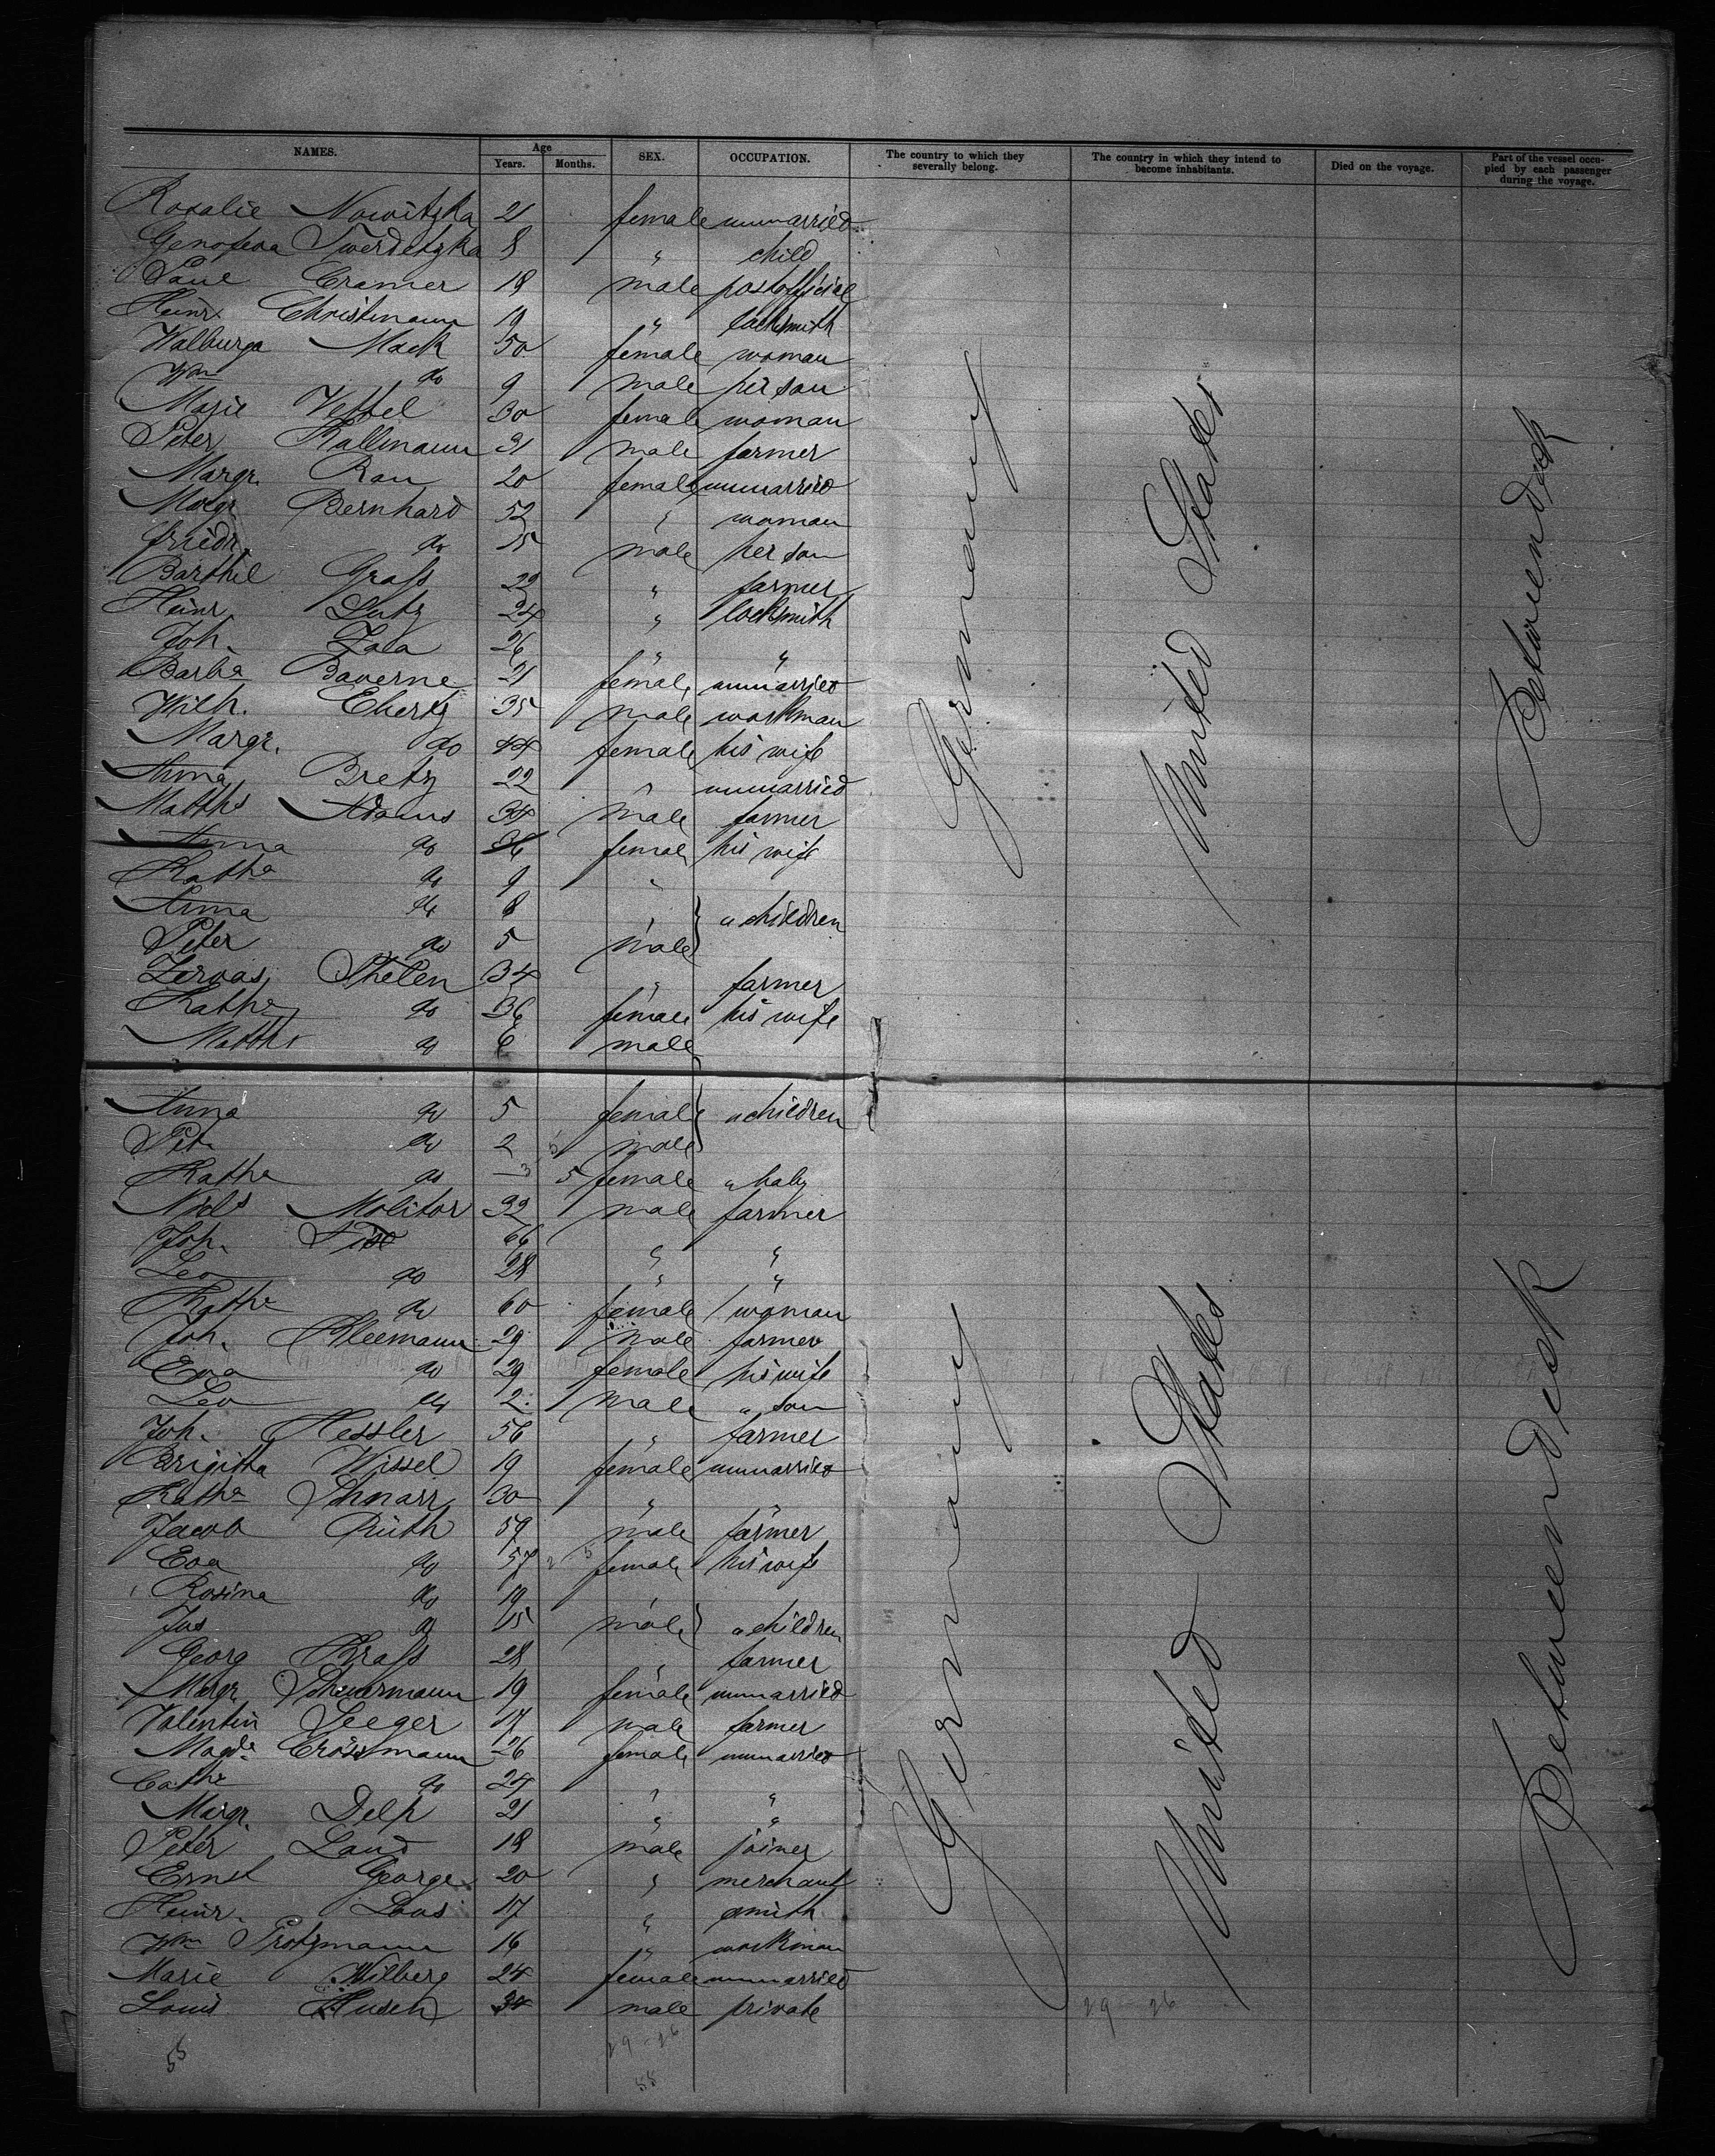 NAMES. Age Years. Months. SEX. OCCUPATION. The country to which they severally belong. The country in which they intend to become inhabitants. Died on the voyage. Part of the vessel occupied by each passenger during the voyage.
Rosalie Nowitzka 21 female unmarried
Genofeva Twerdetzka 8 " child
Paul Cramer 18 male postofficial
Heinr. Christmann 19 " locksmith
Walburga Mack 50 female woman
Wm do 9 male her son
Marie Vessel 30 female woman
Peter Kallmann 31 male farmer
Margr. Rau 20 female unmarried
Margr. Bernhard 52 " woman
Friedr. do 15 male her son
Barthel Grass 22 " farmer
Heinr. Lutz 24 " locksmith
Joh. Zala 26 " "
Barba Baverne 21 female unmarried
Wilh. Ehertz 35 male workman
Margr. do 44 female his wife
Anna Bretz 22 " unmarried
Matths Adams 34 male farmer
Anna do 36 female his wife
Katha do 9 "
Anna do 8 " " children
Peter do 5 male
Zervas Thelen 34 " farmer
Katha do 36 female his wife
Matths do 6 male
Anna do 5 female " children
Pet. do 2 male
Katha do 5 female " baby
Nicls Molitor 32 male farmer
Joh. 66 " "
Leo do 28 " "
Katha do 60 female woman
Joh. Kleemann 29 male farmer
Eva do 29 female his wife
Leo do 2 male " son
Joh. Hessler 56 " farmer
Brigitta Wissel 19 female unmarried
Katha Schnarr 30 " "
Jacob Ruth 59 male farmer
Eva do 57 female his wife
Rosina do 19 "
Jos do 15 male " children
Georg Krass 28 " farmer
Margr. Scheuermann 19 female unmarried
Valentin Seeger 17 male farmer
Magda Crössmann 26 female unmarried
Cathe do 24 " "
Margr. Delp 21 " "
Peter Laud 18 male joiner
Ernst George 20 " merchant
Heinr. Loos 17 " smith
Wm Protzmann 16 " workman
Marie Wilberg 24 female unmarried
Louis Husch male private
Germany United States Betweendeck
Germany United States Betweendeck
55
29-26
55
29 26